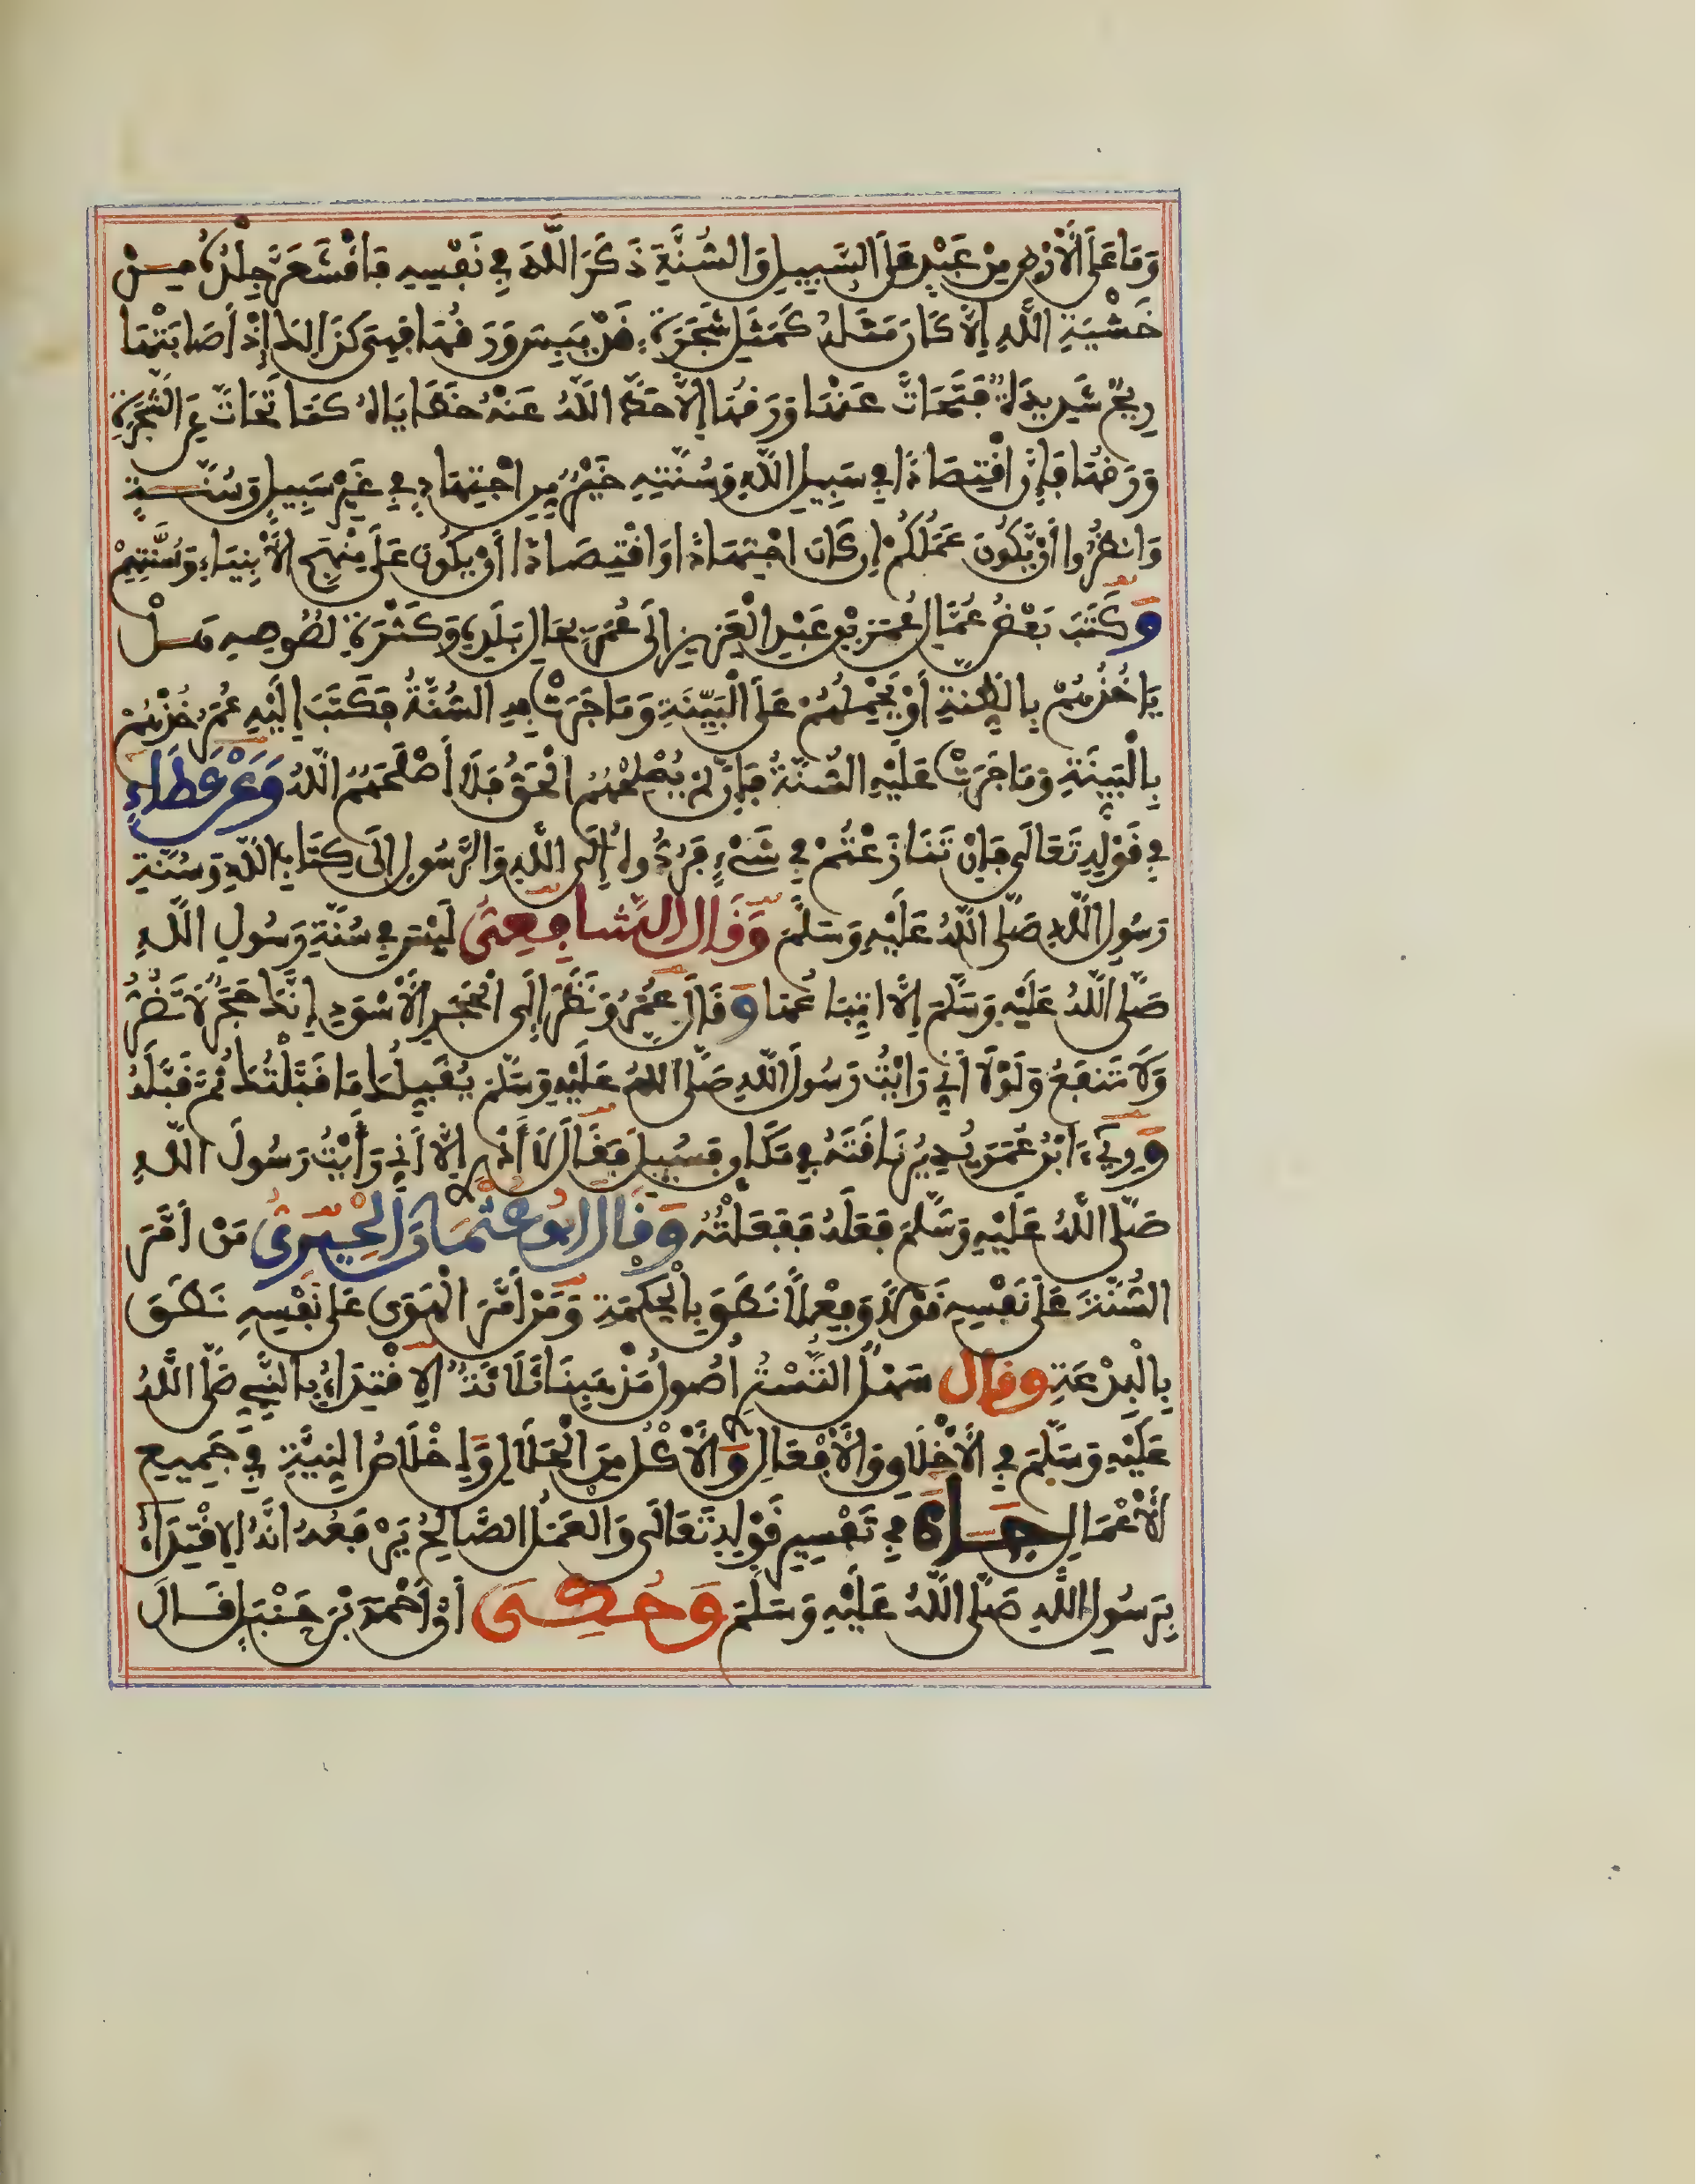 وَمَا عَلَى الْأَرْضِ مِنْ عَبْدٍ عَلَى السَّبِيلِ وَالسُّنَّةِ ذَكَرَ اللَّهَ فِي نَفْسِهِ فَاقْشَعَرَّ جِلْدُهُ مِنْ
خَشْيَةِ اللَّهِ إِلَّا كَانَ مَثَلُهُ كَمَثَلِ شَجَرَةٍ قَدْ يَبِسَ وَرَقُهَا فَهِيَ كَذَالِكَ إِذْ أَصَابَتْهَا
رِيحٌ شَدِيدَةٌ فَتَحَاتَّ عَنْهَا وَرَقُهَا إِلَّا حَطَّ اللَّهُ عَنْهُ خَطَايَاهُ كَمَا تَحَاتَّ عَنِ الشَّجَرَةِ
وَرَقُهَا فَإِنَّ اقْتِصَادًا فِي سَبِيلِ اللَّهِ وَسُنَّتِهِ خَيْرٌ مِنِ اجْتِهَادٍ فِي غَيْرِ سَبِيلٍ وَسُنَّةٍ
وَانْظُرُوا أَنْ يَكُونَ عَمَلُكُمْ إِنْ كَانَ اجْتِهَادًا وَاقْتِصَادًا أَنْ يَكُونَ عَلَى مِنْهَجِ الْأَنْبِيَاءِ وَسُنَّتِهِمْ
وَكَتَبَ بَعْضُ عُمَّالِ عُمَرَ بْنِ عَبْدِ الْعَزِيزِ إِلَى عُمَرَ بِحَالِ بَلَدِهِ وَكَثْرَةِ لُصُوصِهِ هَلْ
يَاخُذُهُمْ بِالظِّنَّةِ أَوْ يَحْمِلُهُمْ عَلَى الْبَيِّنَةِ وَمَا جَرَتْ بِهِ السُّنَّةُ فَكَتَبَ إِلَيْهِ عُمَرُ خُذْهُمْ
بِالْبَيِّنَةِ وَمَا جَرَتْ عَلَيْهِ السُّنَّةُ فَإِنْ لَمْ يُصْلِحْهُمُ الْحَقُّ فَلَا أَصْلَحَهُمُ اللَّهُ وَعَنْ عَطَاءٍ
فِي قَوْلِهِ تَعَالَى فَإِنْ تَنَازَعْتُمْ فِي شَيْءٍ فَرُدُّوهُ إِلَى اللَّهِ وَالرَّسُولِ إِلَى كِتَابِ اللَّهِ وَسُنَّةِ
رَسُولِ اللَّهِ صَلَّى اللَّهُ عَلَيْهِ وَسَلَّمَ وَقَالَ الشَّافِعِيُّ لَيْسَ فِي سُنَّةِ رَسُولِ اللَّهِ
صَلَّى اللَّهُ عَلَيْهِ وَسَلَّمَ إِلَّا اتِّبَاعُهَا وَقَالَ عُمَرُ وَنَظَرَ إِلَى الْحَجَرِ الْأَسْوَدِ إِنَّكَ حَجَرٌ لَا تَضُرُّ
وَلَا تَنْفَعُ وَلَوْلَا أَنِّي رَأَيْتُ رَسُولَ اللَّهِ صَلَّى اللَّهُ عَلَيْهِ وَسَلَّمَ يُقَبِّلُكَ مَا قَبَّلْتُكَ ثُمَّ قَبَّلَهُ
وَرِيءَ ابْنُ عُمَرَ يُدِيرُ نَاقَتَهُ فِي مَكَانٍ فَسُئِلَ فَقَالَ لَا أَدْرِي إِلَّا أَنِّي رَأَيْتُ رَسُولَ اللَّهِ
صَلَّى اللَّهُ عَلَيْهِ وَسَلَّمَ فَعَلَهُ فَفَعَلْتُهُ وَقَالَ أَبُو عُثْمَانَ الْحِيرِيُّ مَنْ أَمَّرَ
السُّنَّةَ عَلَى نَفْسِهِ قَوْلًا وَفِعْلًا نَطَقَ بِالْحِكْمَةِ وَمَنْ أَمَّرَ الْهَوَى عَلَى نَفْسِهِ نَطَقَ
بِالْبِدْعَةِ وَقَالَ سَهْلٌ التُّسْتَرِيُّ أُصُولُ مَذْهَبِنَا ثَلَاثَةٌ الِاقْتِدَاءُ بِالنَّبِيِّ صَلَّى اللَّهُ
عَلَيْهِ وَسَلَّمَ فِي الْأَخْلَاقِ وَالْأَفْعَالِ وَالْأَكْلُ مِنَ الْحَلَالِ وَإِخْلَاصُ النِّيَّةِ فِي جَمِيعِ
الْأَعْمَالِ جَاءَ فِي تَفْسِيرِ قَوْلِهِ تَعَالَى وَالْعَمَلُ الصَّالِحُ يَرْفَعُهُ أَنَّهُ الِاقْتِدَاءُ
بِرَسُولِ اللَّهِ صَلَّى اللَّهُ عَلَيْهِ وَسَلَّمَ وَحُكِيَ أَنَّ أَحْمَدَ بْنَ حَنْبَلٍ قَالَ